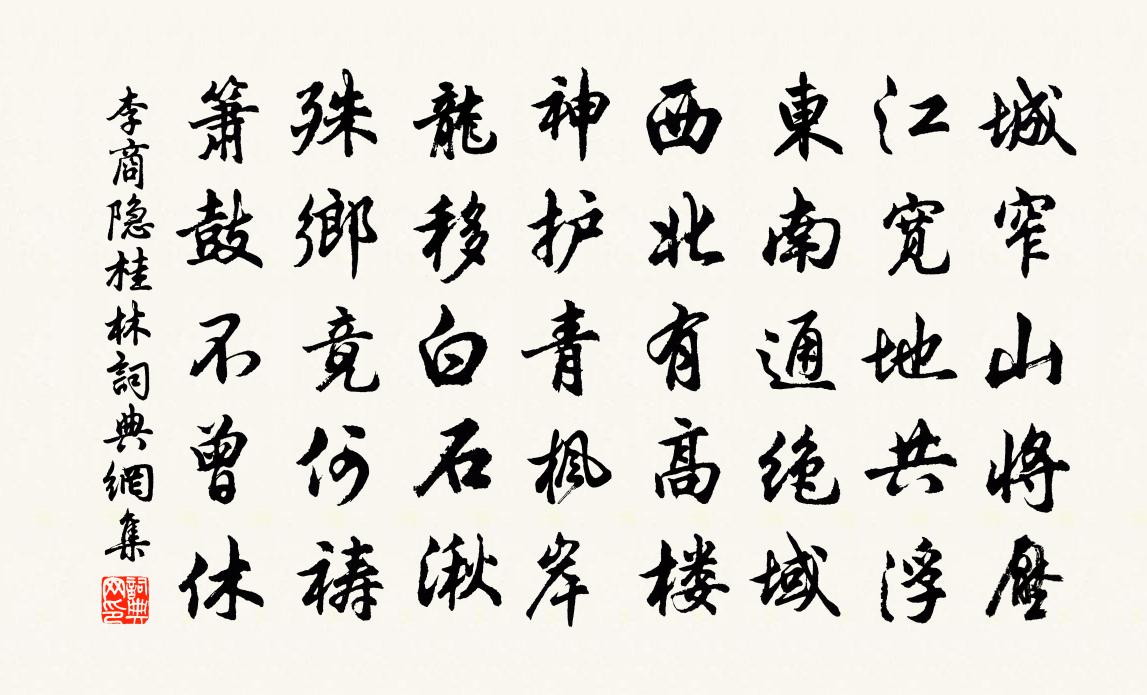 城窄山将壓
江宽地共浮
東南通绝域
西北有高楼
神护青枫岸
龍移白石湫
殊鄉竟何祷
箫鼓不曾休
李商隐桂林詞典網集
詞典網印